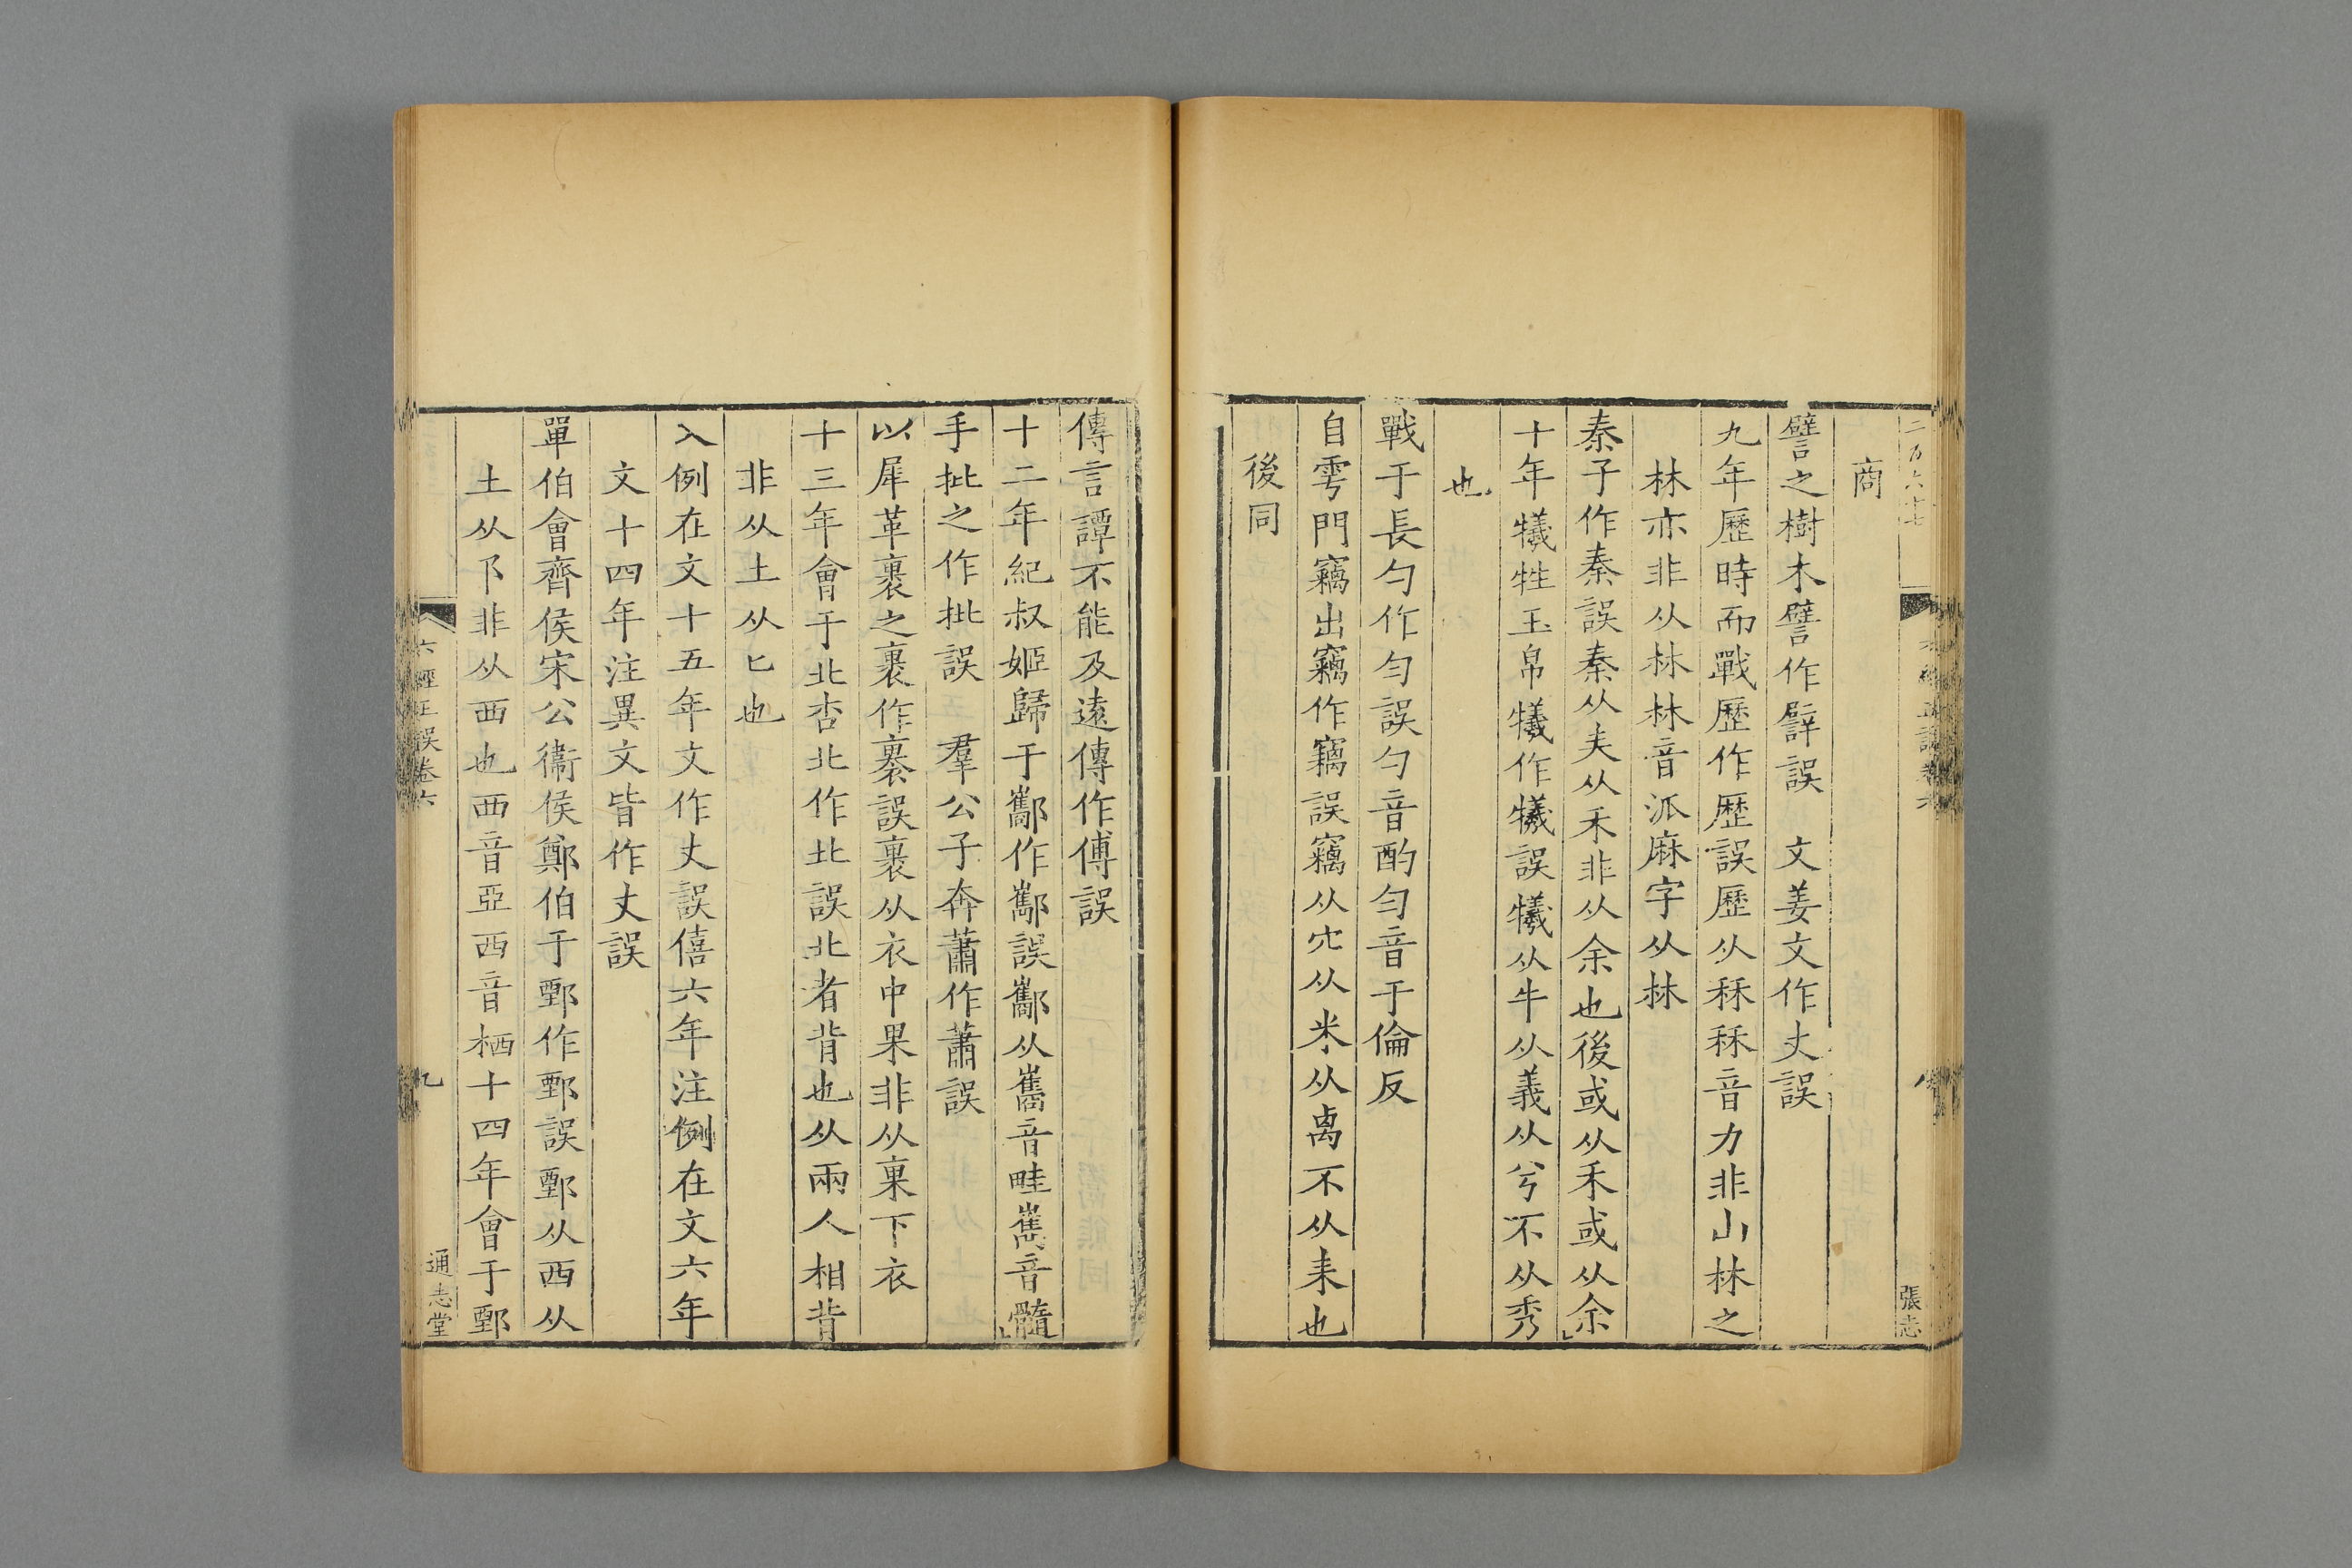 商
譬之樹木譬作躃誤　文姜文作丈誤
九年歷時而戰歷作歴誤歷从秝秝音力非山林之
林亦非从𣏟𣏟音派麻字从𣏟
秦子作秦誤秦从夫从禾非从余也後或从禾或从余
十年犧牲玉帛犧作犠誤犧从牛从義从兮不从秀
也
戰于長勺作勻誤勺音酌勻音于倫反
自雩門竊出竊作竊誤竊从穴从米从禼不从耒也
後同
傳言譚不能及遠傳作傅誤
十二年紀叔姬歸于酅作酅誤酅从巂音畦雋音髓
手㧗之作批誤　羣公子奔蕭作蕭誤
以犀革裹之裹作褁誤裹从衣中果非从菓下衣
十三年會于北杏北作北誤北者背也从兩人相背
非从土从匕也
入例在文十五年文作丈誤僖六年注例在文六年
文十四年注異文皆作丈誤
單伯會齊侯宋公衞侯鄭伯于鄄作鄄誤鄄从西从
土从卩非从西也西音亞西音栖十四年會于鄄
六經正誤卷六
九
通志堂
張志